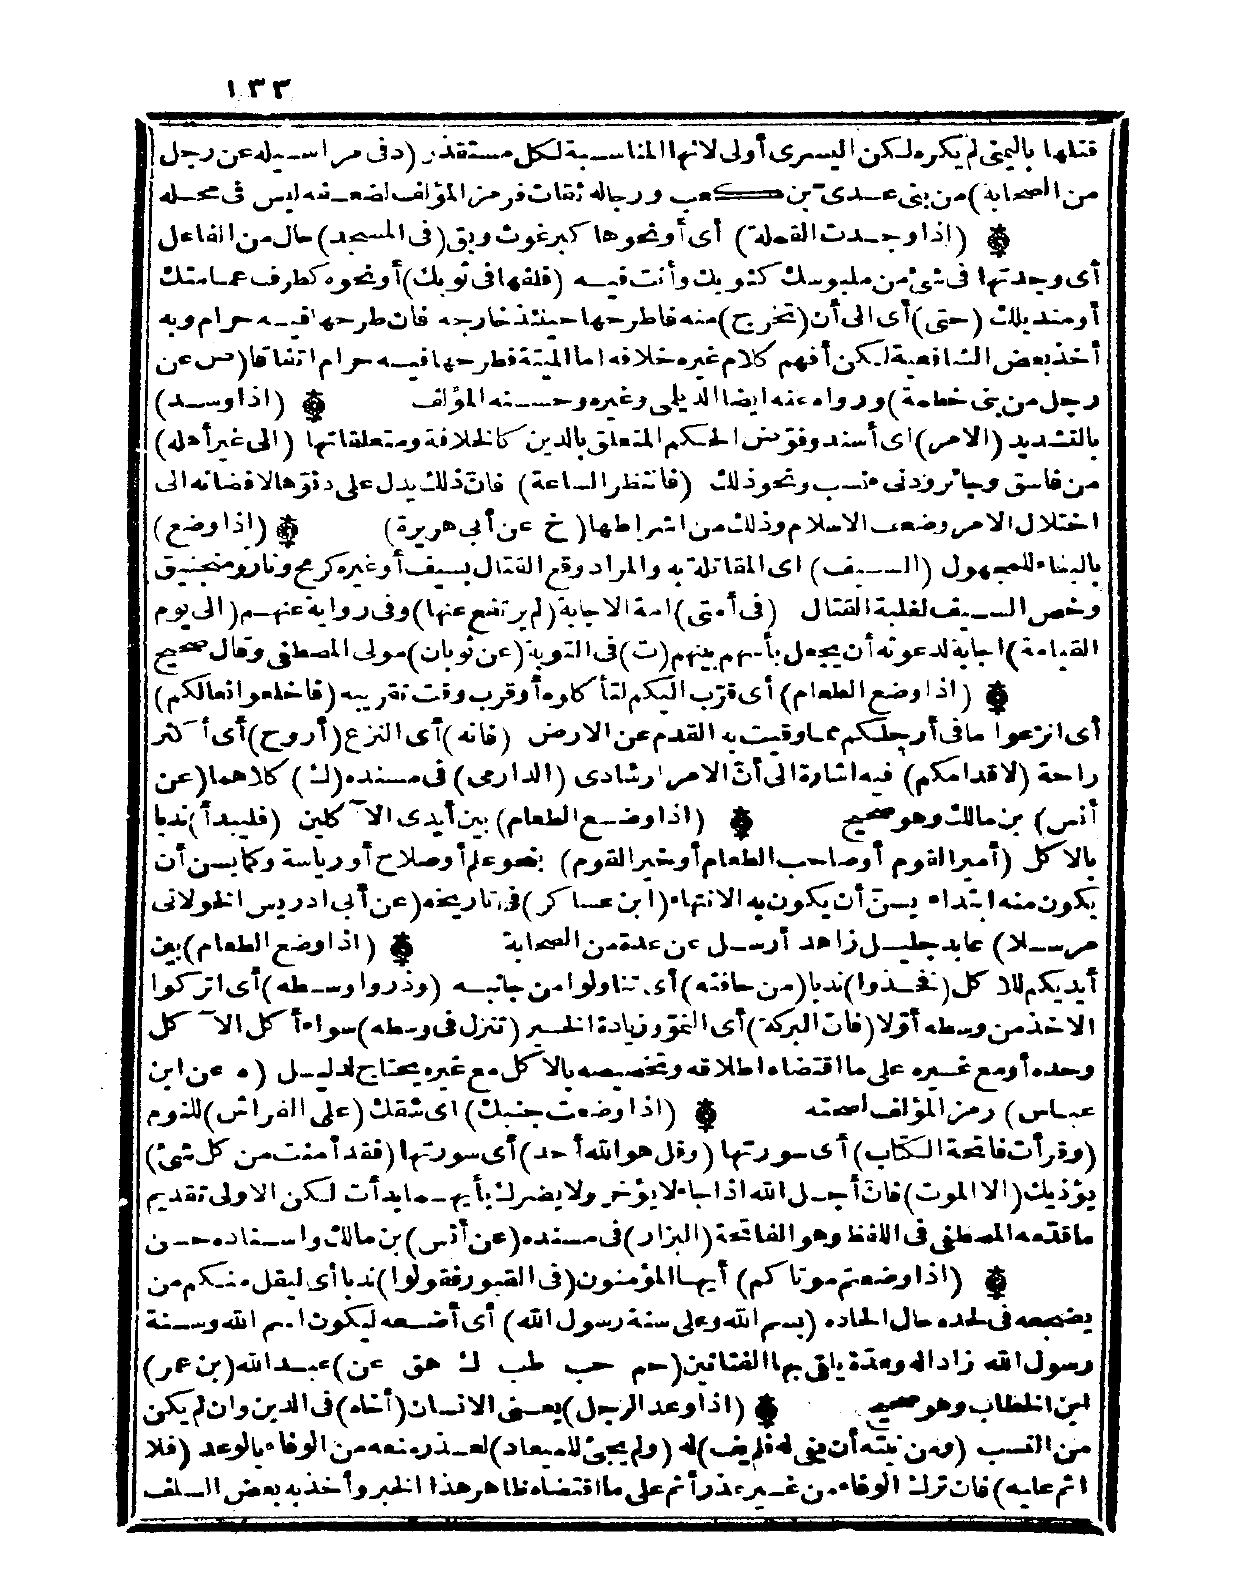 ١٣٣
قتلها باليمنى لم يكره لكن اليسرى أولى لانها المناسبة لكل مستقذر (د فى مراسيله عن رجل
من الصحابة) من بنى عدى بن كعب ورجاله ثقات فرمز المؤلف لضعفه ليس فى محله
(اذا وجدت القملة) أى أو نحوها كبرغوث وبق (فى المسجد) حال من الفاعل
أى وجدتها فى شئ من ملبوسك كثوبك وأنت فيه (فلفها فى ثوبك) أو نحوه كطرف عمامتك
أو منديلك (حتى) أى الى أن (تخرج) منه فاطرحها حينئذ خارجه فان طرحها فيه حرام وبه
أخذ بعض الشافعية لكن أفهم كلام غيره خلافه اما الميتة فطرحها فيه حرام اتفاقا (ص عن
رجل من بنى خطمة) ورواه عنه ايضا الديلمى وغيره وحسنه المؤلف (اذا وسد)
بالتشديد (الامر) اى أسند وفوّض الحكم المتعلق بالدين كالخلافة ومتعلقاتها (الى غير أهله)
من فاسق وجائر ودنى منسب ونحو ذلك (فانتظر الساعة) فانّ ذلك يدل على دنوّها لافضائه الى
اختلال الامر وضعف الاسلام وذلك من اشراطها (خ عن أبى هريرة) (اذا وضع)
بالبناء للمجهول (السيف) اى المقاتلة به والمراد وقع القتال بسيف أو غيره كرمح ونار ومنجنيق
وخص السيف لغلبة القتال (فى أمتى) امة الاجابة (لم يرتفع عنها) وفى رواية عنهم (الى يوم
القيامة) اجابة لدعوته أن يجعل بأسهم بينهم (ت) فى التوبة (عن ثوبان) مولى المصطفى وقال صحيح
(اذا وضع الطعام) أى قرّب اليكم لتأكلوه أو قرب وقت تقريبه (فاخلعوا نعالكم)
أى انزعوا ما فى أرجلكم مما وقيت به القدم عن الارض (فانه) أى النزع (أروح) أى أكثر
راحة (لاقدامكم) فيه اشارة الى أنّ الامر ارشادى (الدارمى) فى مسنده (ك) كلاهما (عن
أنس) بن مالك وهو صحيح (اذا وضع الطعام) بين أيدى الآكلين (فليبدأ) ندبا
بالاكل (أمير القوم أو صاحب الطعام أو خير القوم) بنحو علم أو صلاح أو رياسة وكما يسن أن
يكون منه ابتداء يسنّ أن يكون به الانتهاء (ابن عساكر) فى تاريخه (عن أبى ادريس الخولانى
مرسلا) عابد جليل زاهد أرسل عن عدة من الصحابة (اذا وضع الطعام) بين
أيديكم للاكل (فخذوا) ندبا (من حافته) أى تناولوا من جانبه (وذروا وسطه) أى اتركوا
الاخذ من وسطه أوّلا (فانّ البركة) أى النموّ وزيادة الخير (تنزل فى وسطه) سواء أكل الآكل
وحده أو مع غيره على ما اقتضاه اطلاقه وتخصيصه بالاكل مع غيره يحتاج لدليل (ه عن ابن
عباس) رمز المؤلف لصحته (اذا وضعت جنبك) اى شقك (على الفراش) للنوم
(وقرأت فاتحة الكتاب) أى سورتها (وقل هو الله أحد) أى سورتها (فقد أمنت من كل شئ)
يؤذيك (الا الموت) فانّ أجل الله اذا جاء لا يؤخر ولا يضرك بأيهما بدأت لكن الاولى تقديم
ما قدّمه المصطفى فى اللفظ وهو الفاتحة (البزار) فى مسنده (عن أنس) بن مالك واسناده حسن
(اذا وضعتم موتاكم) أيها المؤمنون (فى القبور فقولوا) ندبا أى ليقل منكم من
يضجعه فى لحده حال الحاده (بسم الله وعلى سنة رسول الله) أى أضعه ليكون اسم الله وسنة
رسول الله زادا له وعدّة يلقى بها الفتانين (حم حب طب ك هق عن) عبد الله (بن عمر)
ابن الخطاب وهو صحيح (اذا وعد الرجل) يعنى الانسان (أخاه) فى الدين وان لم يكن
من النسب (ومن نيته أن يفى له فلم يف) له (ولم يجئ للميعاد) لعذر منعه من الوفاء بالوعد (فلا
اثم عليه) فان ترك الوفاء من غير عذر أثم على ما اقتضاه ظاهر هذا الخبر وأخذ به بعض السلف